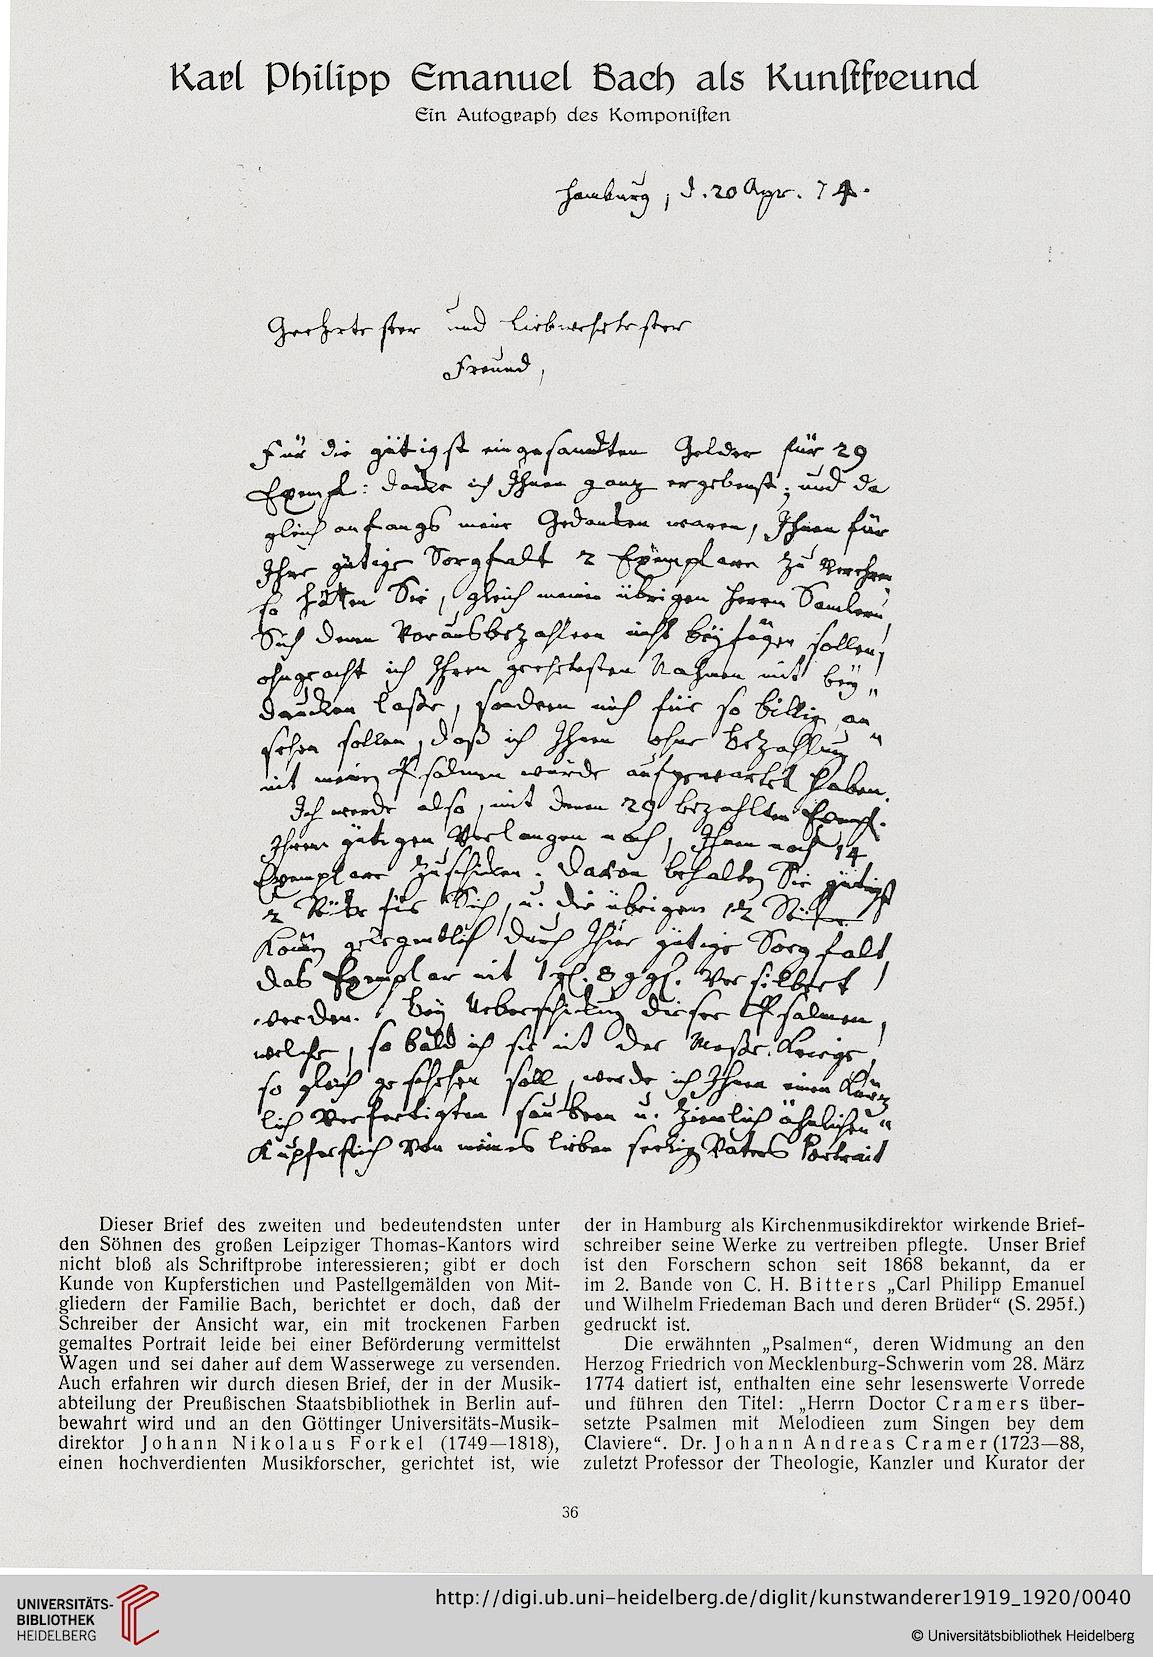 Karl Philipp Emanuel Bach als Kunſtfreund
Ein Autograph des Komponiſten
Hamburg, d. 20 Apr. 74.
Geehrtester und liebwehrtester
Freund,
Für die gütigst eingesandten Gelder für 29
Exempl: dancke ich Ihnen ganz ergebenst; und da
gleich anfangs meine Gedancken waren, Ihnen für
Ihre gütige Sorgfalt 2 Exemplare zu verehren
so hätten Sie, gleich meinen übrigen Herrn Samlern,
Sich denen Vorausbezahlern nicht beyfügen sollen,
ohngeacht ich Ihren geehrtesten Nahmen mit bey„
drucken laße, sondern mich für so billig an„
sehen sollen, daß ich Ihnen ohne Bezahlung
mit meinen Psalmen würde aufgewartet haben.
Ich werde also, mit denen 29 bezahlten Exempl.
Ihrem gütigen Verlangen nach, Ihnen noch 14
Exemplare zuschicken. Davon behalten Sie gütigst
2 Stück für Sich, u. die übrigen 12 Stück
können gelegentlich durch Ihre gütige Sorgfalt,
das Exemplar mit 1 rl. 8 ggl. versilbert
werden. Bey Ueberschickung dieser Psalmen,
welche, so bald ich sie mit der Meße kriege,
so gleich geschehen soll, werde ich Ihnen einen kürz„
lich verfertigten saubern u. ziemlich ähnlichen
Kupferstich von meines lieben seelig Vaters Portrait
Dieser Brief des zweiten und bedeutendsten unter
den Söhnen des großen Leipziger Thomas-Kantors wird
nicht bloß als Schriftprobe interessieren; gibt er doch
Kunde von Kupferstichen und Pastellgemälden von Mit-
gliedern der Familie Bach, berichtet er doch, daß der
Schreiber der Ansicht war, ein mit trockenen Farben
gemaltes Portrait leide bei einer Beförderung vermittelst
Wagen und sei daher auf dem Wasserwege zu versenden.
Auch erfahren wir durch diesen Brief, der in der Musik-
abteilung der Preußischen Staatsbibliothek in Berlin auf-
bewahrt wird und an den Göttinger Universitäts-Musik-
direktor Johann Nikolaus Forkel (1749—1818),
einen hochverdienten Musikforscher, gerichtet ist, wie
der in Hamburg als Kirchenmusikdirektor wirkende Brief-
schreiber seine Werke zu vertreiben pflegte. Unser Brief
ist den Forschern schon seit 1868 bekannt, da er
im 2. Bande von C. H. Bitters „Carl Philipp Emanuel
und Wilhelm Friedeman Bach und deren Brüder“ (S. 295f.)
gedruckt ist.
Die erwähnten „Psalmen“, deren Widmung an den
Herzog Friedrich von Mecklenburg-Schwerin vom 28. März
1774 datiert ist, enthalten eine sehr lesenswerte Vorrede
und führen den Titel: „Herrn Doctor Cramers über-
setzte Psalmen mit Melodieen zum Singen bey dem
Claviere“. Dr. Johann Andreas Cramer (1723—88,
zuletzt Professor der Theologie, Kanzler und Kurator der
36
UNIVERSITÄTS-
BIBLIOTHEK
HEIDELBERG
http://digi.ub.uni-heidelberg.de/diglit/kunstwanderer1919_1920/0040
© Universitätsbibliothek Heidelberg